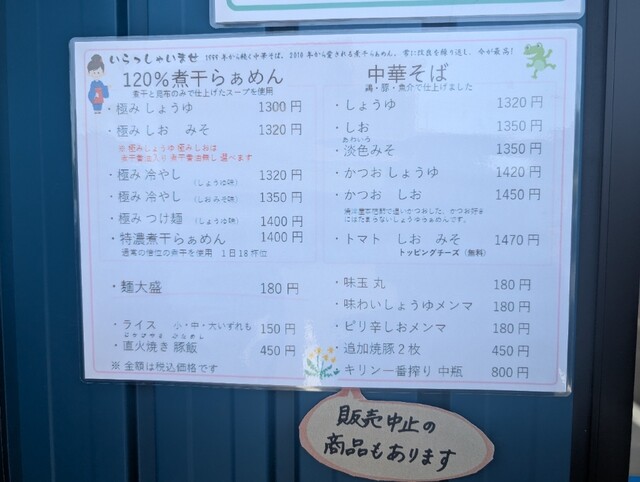 いらっしゃいませ 1999年から続く中華そば。2010年から愛される煮干らぁめん。常に改良を繰り返し、今が最高!
120%煮干らぁめん
煮干と昆布のみで仕上げたスープを使用
・極み しょうゆ 1300円
・極み しお みそ 1320円
※極みしょうゆ 極みしおは
煮干香油入り 煮干香油無し 選べます
・極み 冷やし (しょうゆ味) 1320円
・極み 冷やし (しおみそ味) 1350円
・極み つけ麺 (しょうゆ味) 1400円
・特濃煮干らぁめん 1400円
通常の倍位の煮干を使用 1日18杯位
・麺大盛 180円
・ライス 小・中・大いずれも 150円
・直火焼き 豚飯 450円
※金額は税込価格です
中華そば
鶏・豚・魚介で仕上げました
・しょうゆ 1320円
・しお 1350円
あわいろ
・淡色みそ 1350円
・かつお しょうゆ 1420円
・かつお しお 1450円
にはたまらないしょうゆらぁめんです。
・トマト しお みそ 1470円
トッピングチーズ(無料)
・味玉 丸 180円
・味わいしょうゆメンマ 180円
・ピリ辛しおメンマ 180円
・追加焼豚2枚 450円
・キリン一番搾り 中瓶 800円
販売中止の
商品もあります